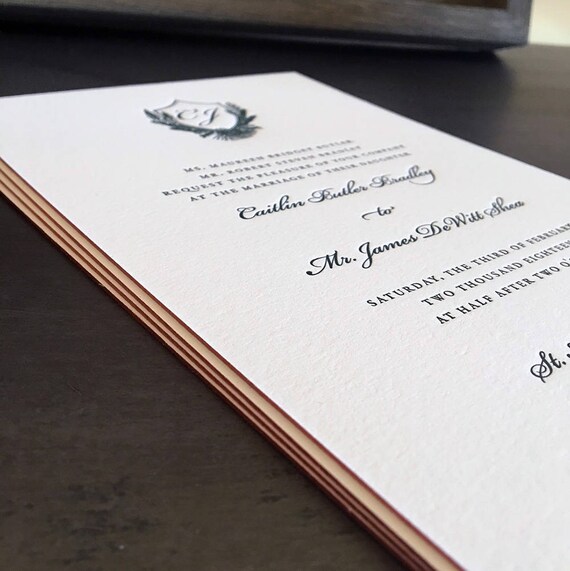 CJ
MS. MAUREEN BRIDGET BUTLER
MR. ROBERT STEVEN BRADLEY
REQUEST THE PLEASURE OF YOUR COMPANY
AT THE MARRIAGE OF THEIR DAUGHTER
Caitlin Butler Bradley
to
Mr. James DeWitt Shea
SATURDAY, THE THIRD OF FEBRUAR
TWO THOUSAND EIGHTEEN
AT HALF AFTER TWO O'
St.